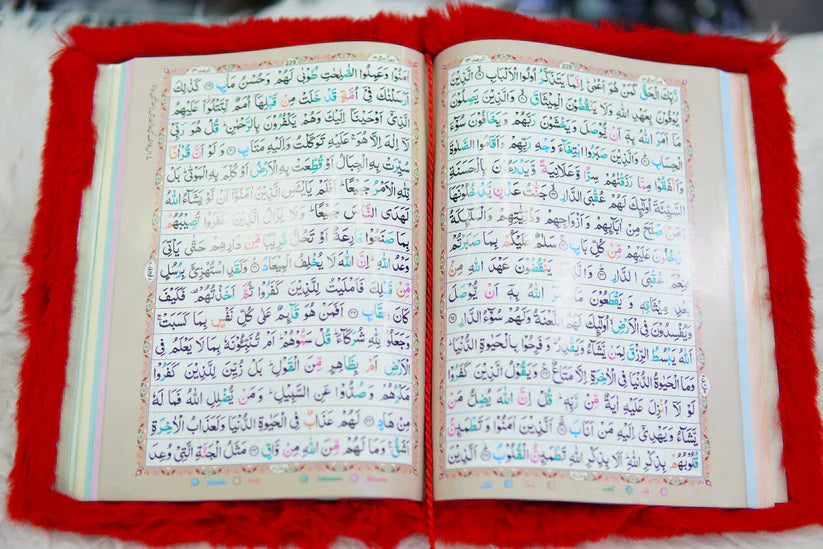 رَبِّكَ الْحَقُّ كَمَنْ هُوَ اَعْمٰى ؕ اِنَّمَا يَتَذَكَّرُ اُولُوا الْاَلْبَابِ ۙ الَّذِيْنَ
يُوْفُوْنَ بِعَهْدِ اللّٰهِ وَلَا يَنْقُضُوْنَ الْمِيْثَاقَ ۙ وَالَّذِيْنَ يَصِلُوْنَ
مَاۤ اَمَرَ اللّٰهُ بِهٖۤ اَنْ يُّوْصَلَ وَيَخْشَوْنَ رَبَّهُمْ وَيَخَافُوْنَ سُوْٓءَ
الْحِسَابِ ؕ وَالَّذِيْنَ صَبَرُوا ابْتِغَآءَ وَجْهِ رَبِّهِمْ وَاَقَامُوا الصَّلٰوةَ
وَاَنْفَقُوْا مِمَّا رَزَقْنٰهُمْ سِرًّا وَّعَلَانِيَةً وَّيَدْرَءُوْنَ بِالْحَسَنَةِ
السَّيِّئَةَ اُولٰٓئِكَ لَهُمْ عُقْبَى الدَّارِ ۙ جَنّٰتُ عَدْنٍ يَّدْخُلُوْنَهَا
وَمَنْ صَلَحَ مِنْ اٰبَآئِهِمْ وَاَزْوَاجِهِمْ وَذُرِّيّٰتِهِمْ وَالْمَلٰٓئِكَةُ
يَدْخُلُوْنَ عَلَيْهِمْ مِّنْ كُلِّ بَابٍ ۚ سَلٰمٌ عَلَيْكُمْ بِمَا صَبَرْتُمْ
فَنِعْمَ عُقْبَى الدَّارِ ؕ وَالَّذِيْنَ يَنْقُضُوْنَ عَهْدَ اللّٰهِ مِنْۢ
بَعْدِ مِيْثَاقِهٖ وَيَقْطَعُوْنَ مَاۤ اَمَرَ اللّٰهُ بِهٖۤ اَنْ يُّوْصَلَ
وَيُفْسِدُوْنَ فِى الْاَرْضِ ۙ اُولٰٓئِكَ لَهُمُ اللَّعْنَةُ وَلَهُمْ سُوْٓءُ الدَّارِ
اَللّٰهُ يَبْسُطُ الرِّزْقَ لِمَنْ يَّشَآءُ وَيَقْدِرُ ؕ وَفَرِحُوْا بِالْحَيٰوةِ الدُّنْيَا ؕ
وَمَا الْحَيٰوةُ الدُّنْيَا فِى الْاٰخِرَةِ اِلَّا مَتَاعٌ ۠ وَيَقُوْلُ الَّذِيْنَ كَفَرُوْا
لَوْ لَاۤ اُنْزِلَ عَلَيْهِ اٰيَةٌ مِّنْ رَّبِّهٖ ؕ قُلْ اِنَّ اللّٰهَ يُضِلُّ مَنْ
يَّشَآءُ وَيَهْدِىْۤ اِلَيْهِ مَنْ اَنَابَ ۚ اَلَّذِيْنَ اٰمَنُوْا وَتَطْمَئِنُّ
قُلُوْبُهُمْ بِذِكْرِ اللّٰهِ ؕ اَلَا بِذِكْرِ اللّٰهِ تَطْمَئِنُّ الْقُلُوْبُ ؕ اَلَّذِيْنَ
اٰمَنُوْا وَعَمِلُوا الصّٰلِحٰتِ طُوْبٰى لَهُمْ وَحُسْنُ مَاٰبٍ كَذٰلِكَ
اَرْسَلْنٰكَ فِىْۤ اُمَّةٍ قَدْ خَلَتْ مِنْ قَبْلِهَاۤ اُمَمٌ لِّتَتْلُوَا۟ عَلَيْهِمُ
الَّذِىْۤ اَوْحَيْنَاۤ اِلَيْكَ وَهُمْ يَكْفُرُوْنَ بِالرَّحْمٰنِ ؕ قُلْ هُوَ رَبِّىْ
لَاۤ اِلٰهَ اِلَّا هُوَ ۚ عَلَيْهِ تَوَكَّلْتُ وَاِلَيْهِ مَتَابِ وَلَوْ اَنَّ قُرْاٰنًا
سُيِّرَتْ بِهِ الْجِبَالُ اَوْ قُطِّعَتْ بِهِ الْاَرْضُ اَوْ كُلِّمَ بِهِ الْمَوْتٰى ؕ بَلْ
لِّلّٰهِ الْاَمْرُ جَمِيْعًا ؕ اَفَلَمْ يَايْـَٔسِ الَّذِيْنَ اٰمَنُوْۤا اَنْ لَّوْ يَشَآءُ اللّٰهُ
لَهَدَى النَّاسَ جَمِيْعًا ؕ وَلَا يَزَالُ الَّذِيْنَ كَفَرُوْا تُصِيْبُهُمْ
بِمَا صَنَعُوْا قَارِعَةٌ اَوْ تَحُلُّ قَرِيْبًا مِّنْ دَارِهِمْ حَتّٰى يَاْتِىَ
وَعْدُ اللّٰهِ ؕ اِنَّ اللّٰهَ لَا يُخْلِفُ الْمِيْعَادَ وَلَقَدِ اسْتُهْزِئَ بِرُسُلٍ
مِّنْ قَبْلِكَ فَاَمْلَيْتُ لِلَّذِيْنَ كَفَرُوْا ثُمَّ اَخَذْتُهُمْ ۫ فَكَيْفَ
كَانَ عِقَابِ اَفَمَنْ هُوَ قَآئِمٌ عَلٰى كُلِّ نَفْسٍۭ بِمَا كَسَبَتْ ۚ
وَجَعَلُوْا لِلّٰهِ شُرَكَآءَ ؕ قُلْ سَمُّوْهُمْ ؕ اَمْ تُنَبِّئُوْنَهٗ بِمَا لَا يَعْلَمُ فِى
الْاَرْضِ اَمْ بِظَاهِرٍ مِّنَ الْقَوْلِ ؕ بَلْ زُيِّنَ لِلَّذِيْنَ كَفَرُوْا
مَكْرُهُمْ وَصُدُّوْا عَنِ السَّبِيْلِ ؕ وَمَنْ يُّضْلِلِ اللّٰهُ فَمَا لَهٗ
مِنْ هَادٍ لَهُمْ عَذَابٌ فِى الْحَيٰوةِ الدُّنْيَا وَلَعَذَابُ الْاٰخِرَةِ
اَشَقُّ ۚ وَمَا لَهُمْ مِّنَ اللّٰهِ مِنْ وَّاقٍ مَثَلُ الْجَنَّةِ الَّتِىْ وُعِدَ